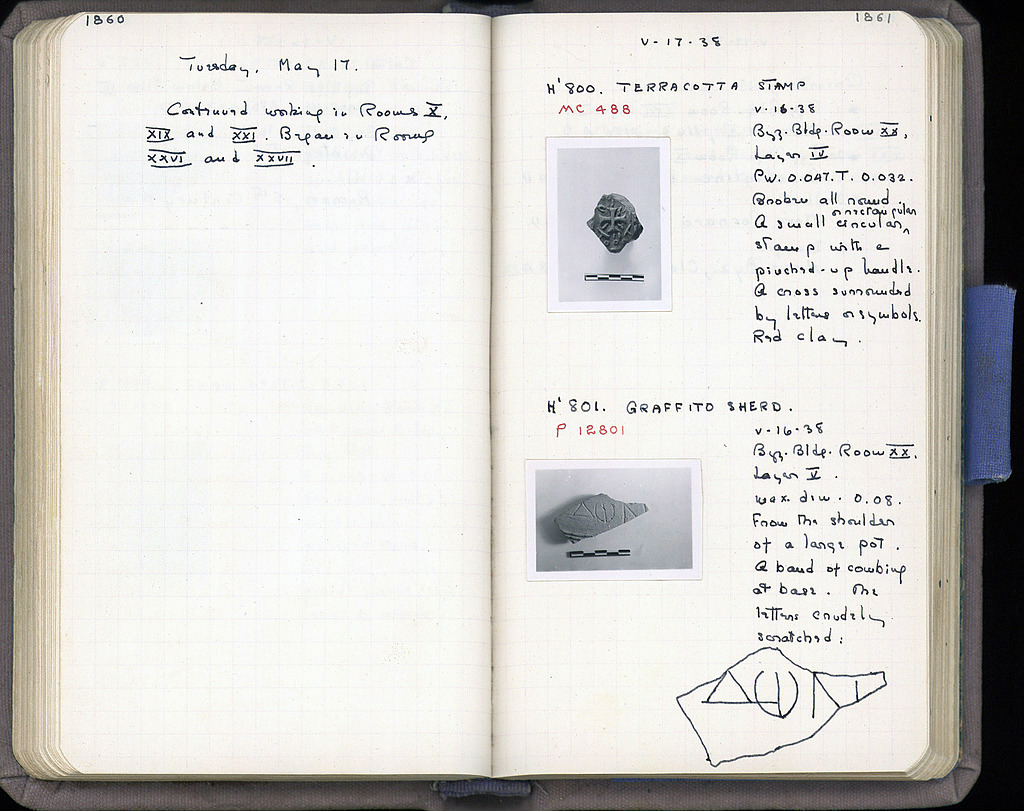 1860
Tuesday, May 17.
Continued working in Rooms X,
XIX and XXI. Began in Rooms
XXVI and XXVII.
1861
V-17-38
H'800. TERRACOTTA STAMP
MC 488
V-16-38
Byz. Bldg. Room XX,
Layer IV
PW. 0.047. T. 0.032.
Broken all round.
or rectangular
A small circular
stamp with a
pinched-up handle.
A cross surrounded
by letters or symbols.
Red clay.
H'801. GRAFFITO SHERD.
P 12801
V-16-38
Byz. Bldg. Room XX,
Layer V.
max. dim. 0.08.
From the shoulder
of a large pot.
A band of combing
at base. The
letters crudely
scratched: